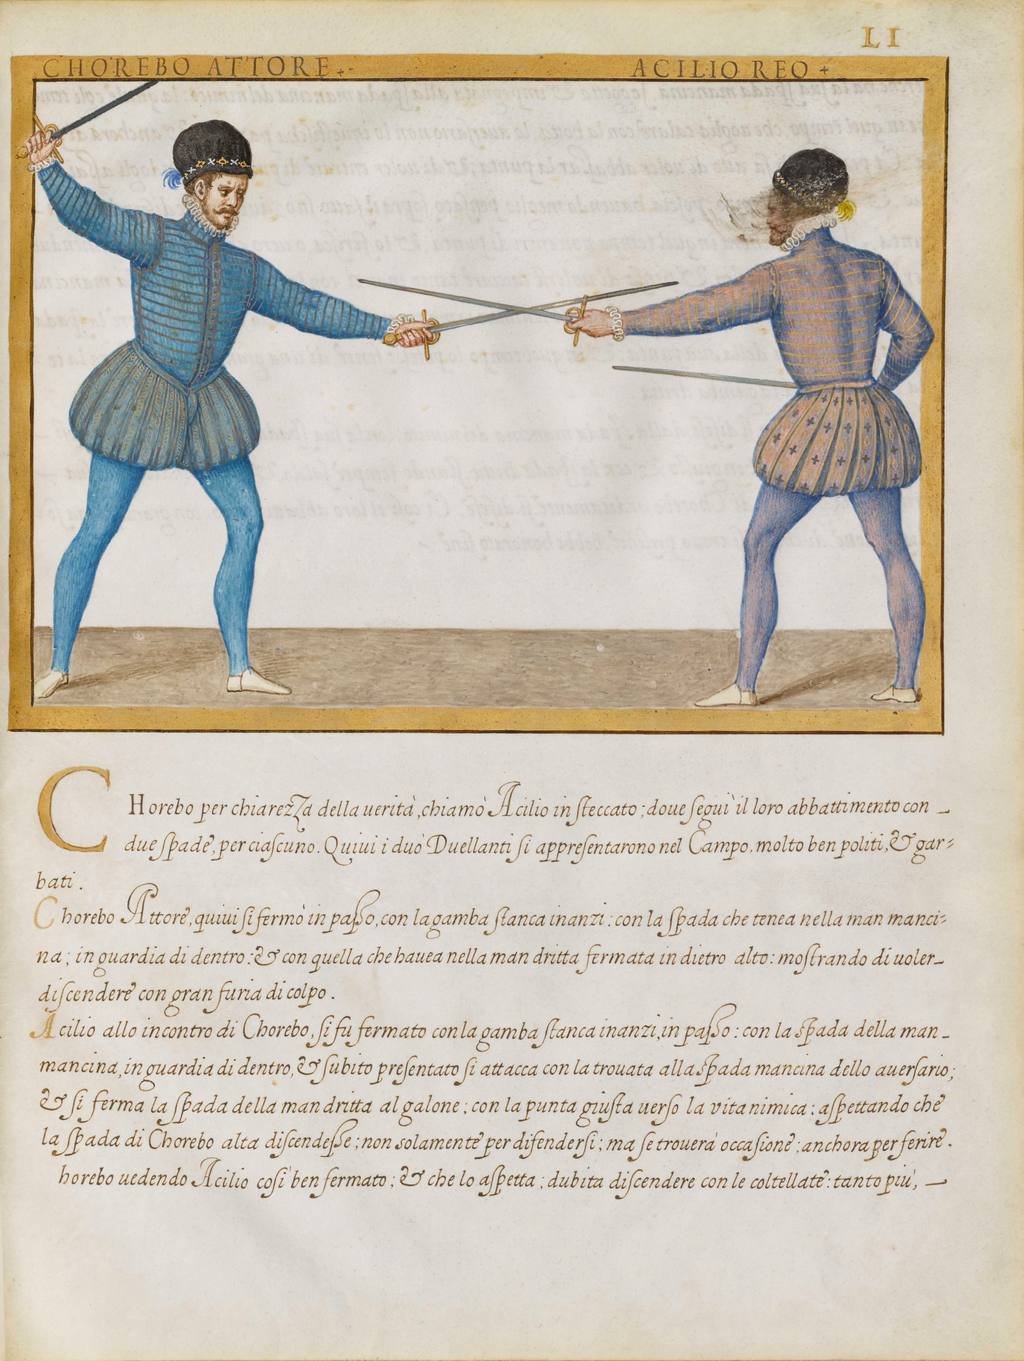 LI
CHOREBO ATTORE
ACILIO REO
CHorebo per chiarezza della uerità, chiamò Acilio in steccato; doue seguì il loro abbattimento con
due spade, per ciascuno. Quiui i duo Duellanti si appresentarono nel Campo, molto ben politi, & gar=
bati.
Chorebo Attore, quiui si fermò in passo, con la gamba stanca inanzi: con la spada che tenea nella man manci=
na; in guardia di dentro: & con quella che hauea nella man dritta fermata in dietro alto: mostrando di uoler
discendere con gran furia di colpo.
Acilio allo incontro di Chorebo, si fu fermato con la gamba stanca inanzi, in passo: con la spada della man
mancina, in guardia di dentro, & subito presentato si attacca con la trouata alla spada mancina dello auersario;
& si ferma la spada della man dritta al galone; con la punta giusta uerso la vita nimica: aspettando che
la spada di Chorebo alta discendesse; non solamente per difendersi; ma se trouerà occasione; anchora per ferire.
horebo uedendo Acilio così ben fermato; & che lo aspetta; dubita discendere con le coltellate: tanto più,